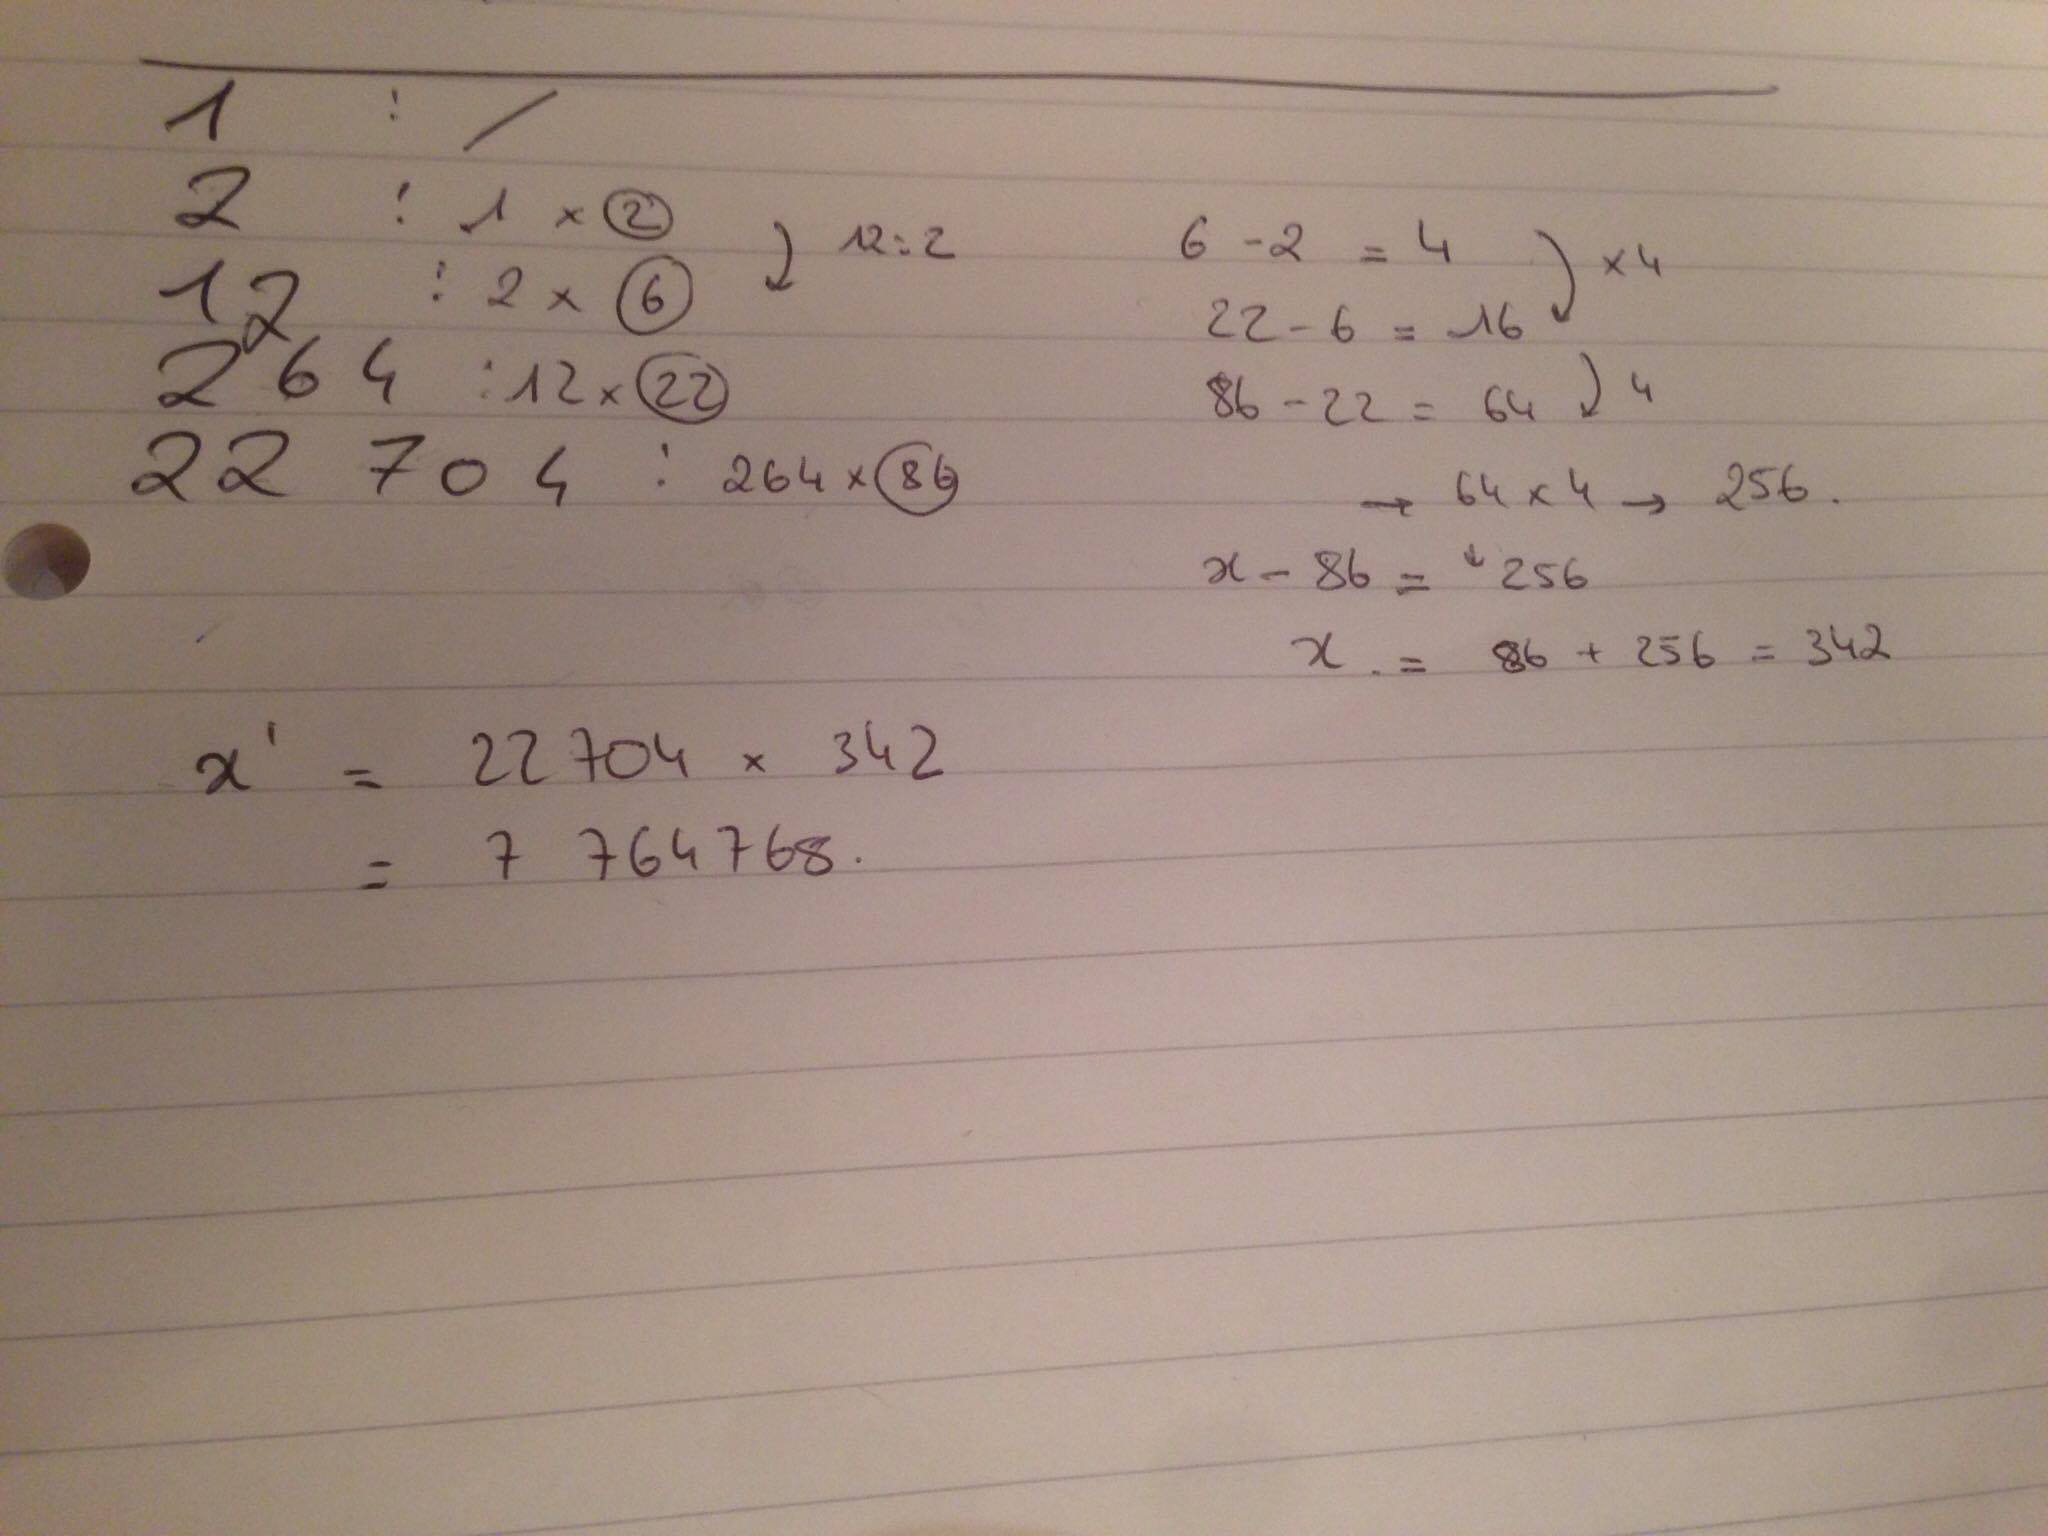 1 : /
2 : 1 × 2
12 : 2 × 6
264 : 12 × 22
22 704 : 264 × 86
12:2
6 - 2 = 4
× 4
22 - 6 = 16
86 - 22 = 64
4
→ 64 × 4 → 256.
x - 86 = 256
x . = 86 + 256 = 342
x' = 22704 × 342
= 7 764768.